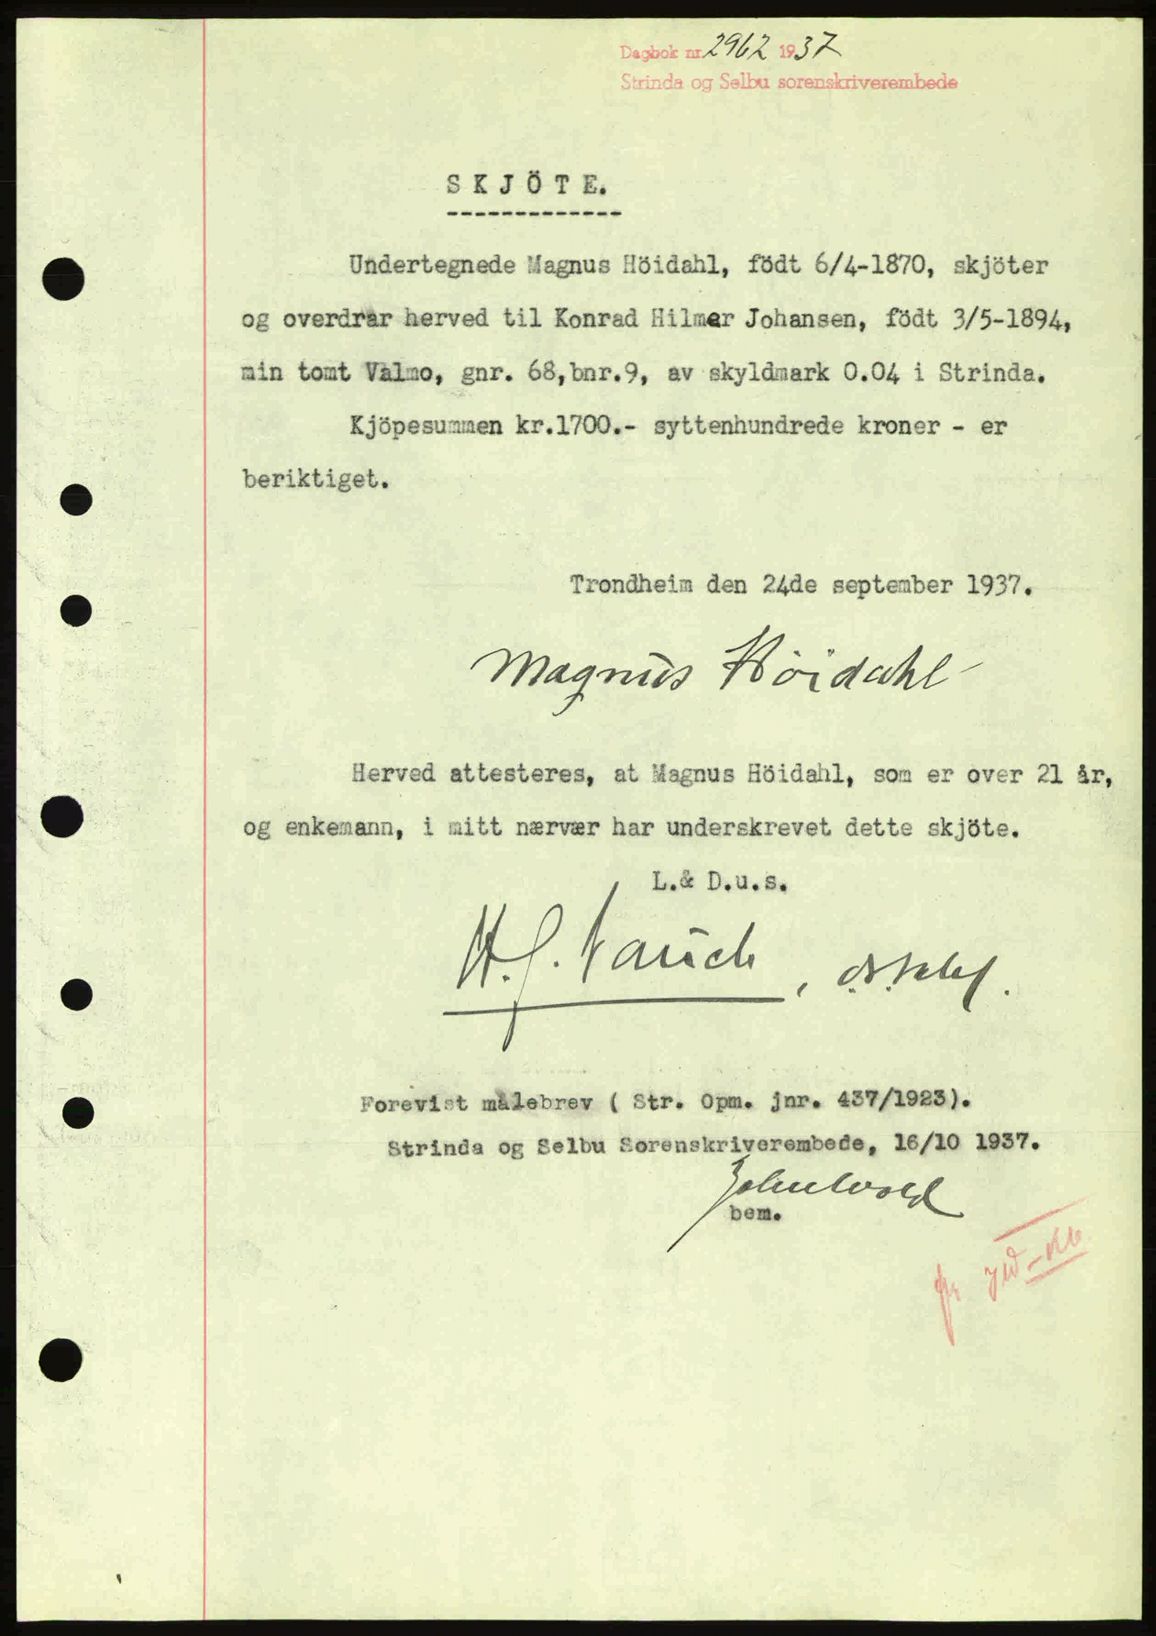 Dagbok nr. 2962 1937
Strinda og Selbu sorenskriverembede
SKJÖTE.
Undertegnede Magnus Höidahl, födt 6/4-1870, skjöter
og overdrar herved til Konrad Hilmar Johansen, födt 3/5-1894,
min tomt Valmo, gnr. 68,bnr.9, av skyldmark 0.04 i Strinda.
Kjöpesummen kr.1700.- syttenhundrede kroner - er
beriktiget.
Trondheim den 24de september 1937.
Magnus Höidahl
Herved attesteres, at Magnus Höidahl, som er over 21 år,
og enkemann, i mitt nærvær har underskrevet dette skjöte.
L.& D.u.s.
Forevist målebrev ( Str. Opm. jnr. 437/1923).
Strinda og Selbu Sorenskriverembede, 16/10 1937.
bem.